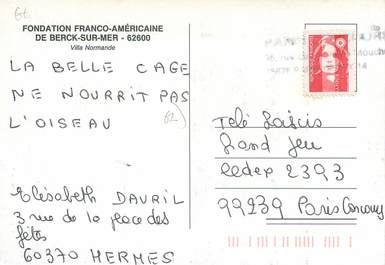 FONDATION FRANCO-AMÉRICAINE
DE BERCK-SUR-MER - 62600
Villa Normande
LA BELLE CAGE
NE NOURRIT PAS
L'OISEAU
62
Elisabeth DAVRIL
3 rue de la place des
fêtes
60370 HERMES
Télé Loisirs
Grand Jeu
cedex 2393
99239 Paris Concours